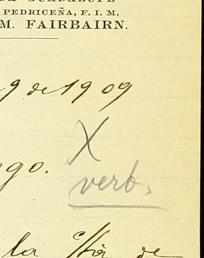 PEDRICEÑA, F. I. M.
M. FAIRBAIRN.
9 de 1909
X
go.
verb.
la Cía de